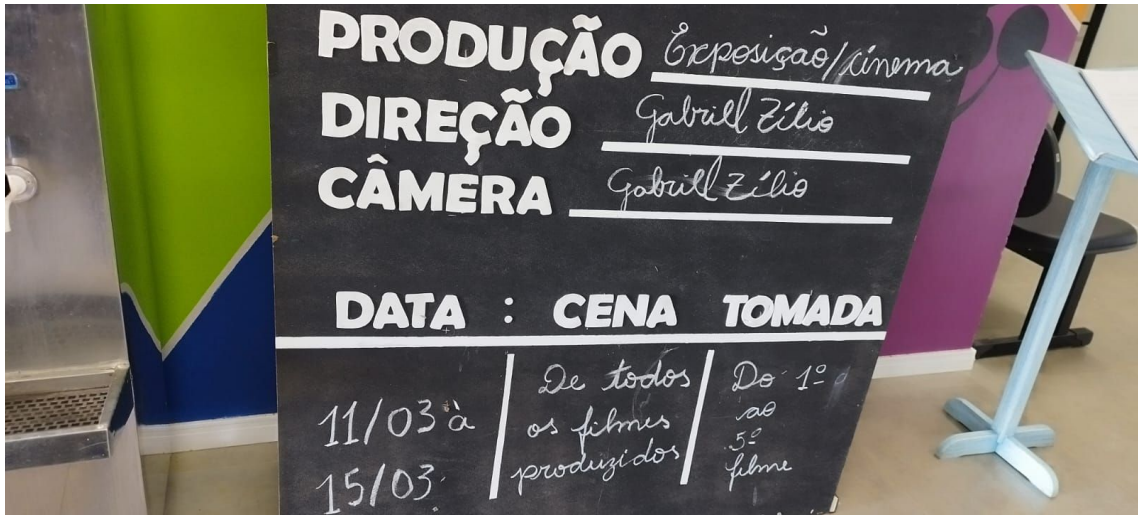 PRODUÇÃO Exposição/cinema
DIREÇÃO Gabriell Zílio
CÂMERA Gabriell Zílio
DATA : CENA TOMADA
11/03 à
15/03.
De todos
os filmes
produzidos
Do 1º
ao
5º
filme